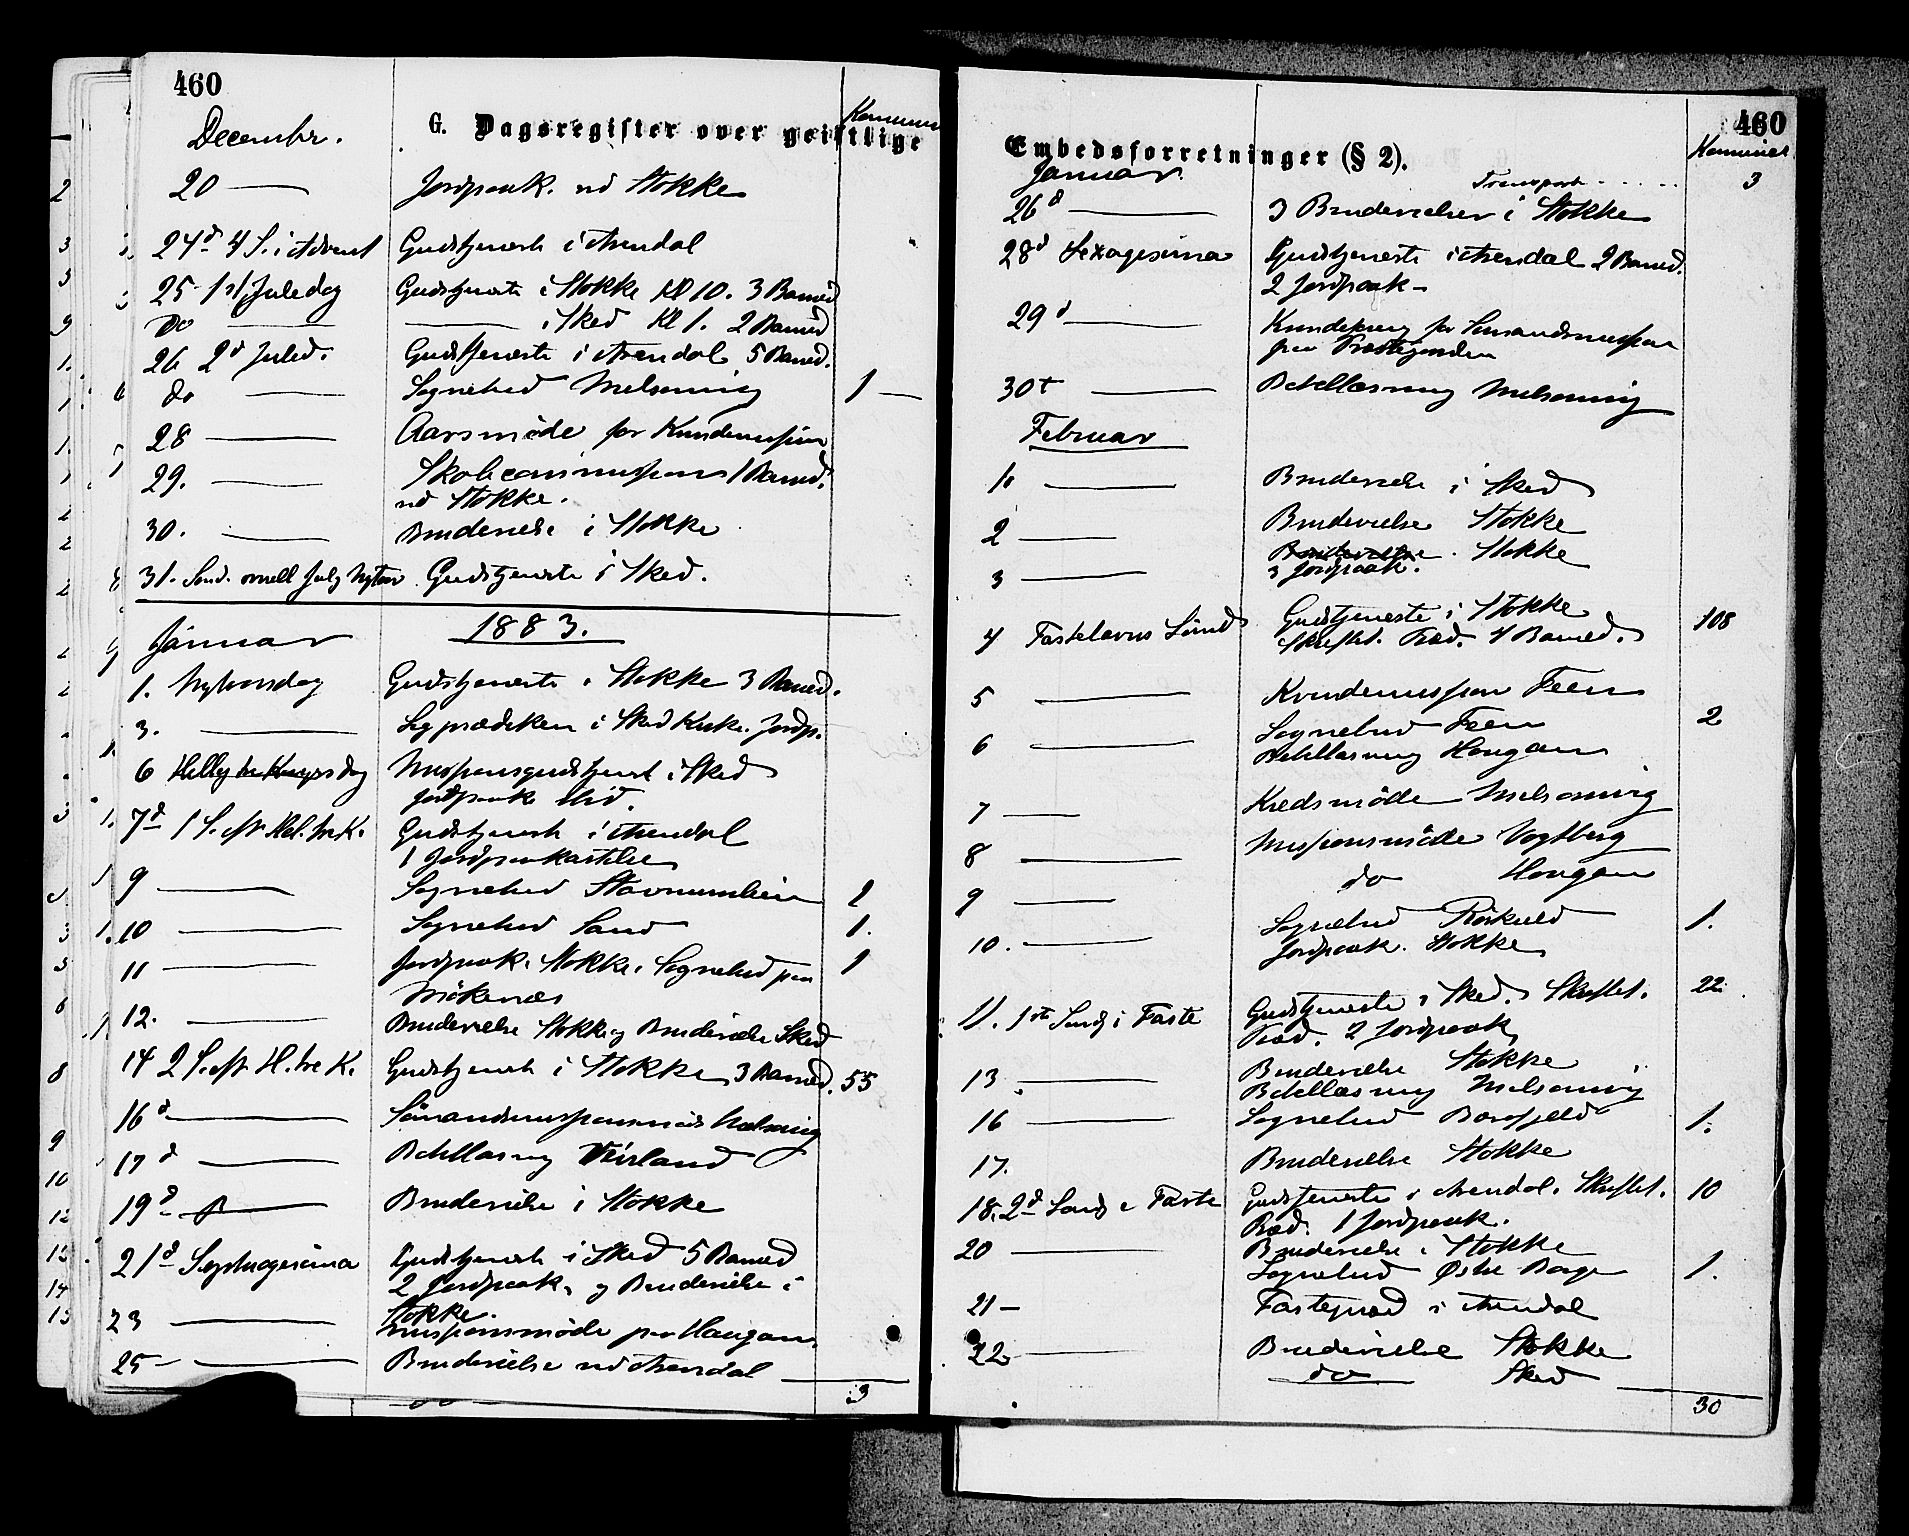 460
Decembr.
G. Dagsregister over geistlige
Kommuni
20 — Jordpaak. ved Stokke
24d 4 S. i Advent Gudstjeneste i Arendal
25 1st Juledag Gudstjeneste i Stokke Kl 10. 3 Barned
Do — i Sked Kl 1. 2 Barned
26 2d Juled. Gudstjeneste i Arendal 5 Barned.
do — Sognebud Melsomvig 1 —
28 — Aarsmöde for Kvindemission
29. — Skolecommission 1 Barned.
ved Stokke.
30. — Brudevielse i Stokke
31. Sönd. mell Jul og Nytaar Gudstjeneste i Sked.
Januar 1883.
1. Nytaarsdag Gudstjeneste i Stokke 3 Barned.
3. — Ligprædiken i Sked Kirke. Jordp.
6 Hellig tre Kongersdag Missionsgudstjenest i Sked
Jordpaak.
7d 1 S. eft. Hel. tre K. Gudstjeneste i Arendal
1 Jordpaakastelse
9 — Sognebud 1
10 — Sognebud Sand 1.
11 — Jordpaak. Stokke. Sognebud paa 1
12. — Brudevielse Stokke og Brudevielse Sked
14 2 S. eft. H. tre K. Gudstjeneste i Stokke 3 Barned. 55
16d —
17d — Bibellæsning Veirland
19d — Brudevielse i Stokke
21d Septuagesima Gudstjeneste i Sked 5 Barned
2 Jordpaak. og Brudevielse i
Stokke.
23 — Missionsmöde paa Haugan.
25 — Brudevielse ved Arendal
3
Embedsforretninger (§ 2).
460
Kommuni
Januar. Transport 3
26d — 3 Brudevielser i Stokke
28d Sexagesima Gudstjeneste i Arendal 2 Barned.
2 Jordpaak —
29d — Kvindeforeng for Sömandsmission
paa Præstegaarden
30t — Bibellæsning Melsomvig
Februar
1. — Brudevielse i Sked
2 — Brudevielse Stokke
3 — Brudevielse. Stokke
3 Jordpaak.
4 Fastelavns Sönd Gudstjeneste i Stokke
Skriftet. Præd. 4 Barned. 108
5 — Kvindemission Feen
6 — Sognebud Feen 2
Bibellæsning Haugan
7 — Kredsmöde Melsomvig
8 — Missionsmöde Vogtberg
9 — do Haugan
10. — Sognebud 1.
Jordpaak. Stokke
11. 1ste Sönd i Faste Gudstjeneste i Sked. Skriftet. 22
Præd. 2 Jordpaak
13. — Brudevielse Stokke
Bibellæsning Melsomvig
16 — Sognebud 1.
17. Brudevielse Stokke
18. 2d Sönd i Faste Gudstjeneste i Arendal. Skriftet. 10
Præd. 1 Jordpaak.
20 — Brudevielse i Stokke
Sognebud Östre Borge 1.
21 — Fastepræd i Arendal
22 — Brudevielse Stokke
do Sked
30